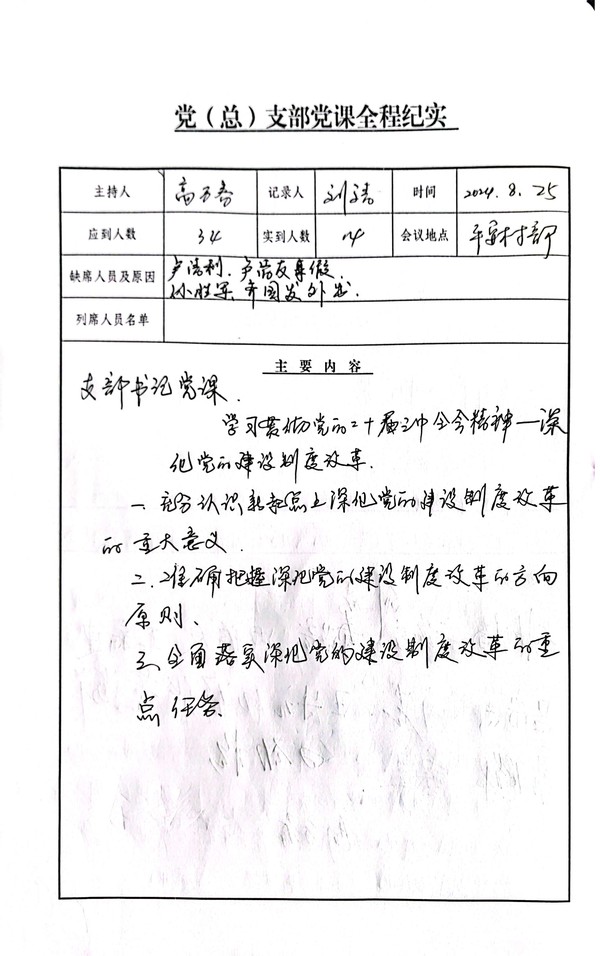 党（总）支部党课全程纪实
主持人 记录人 时间 2024.8.25
应到人数 34 实到人数 会议地点 村部
缺席人员及原因 卢浩利、卢浩友身假、
外出.
列席人员名单
主要内容
支部书记党课.
学习贯彻党的二十届三中全会精神—深
化党的建设制度改革.
一、充分认识新起点上深化党的建设制度改革
的重大意义.
二、准确把握深化党的建设制度改革的方向
原则、
三、全面落实深化党的建设制度改革的重
点任务.